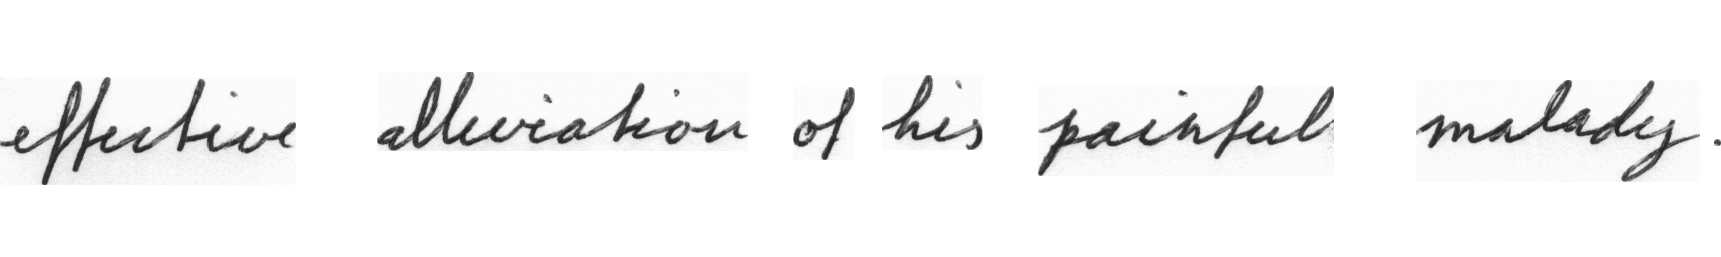 effective alleviation of his painful malady.